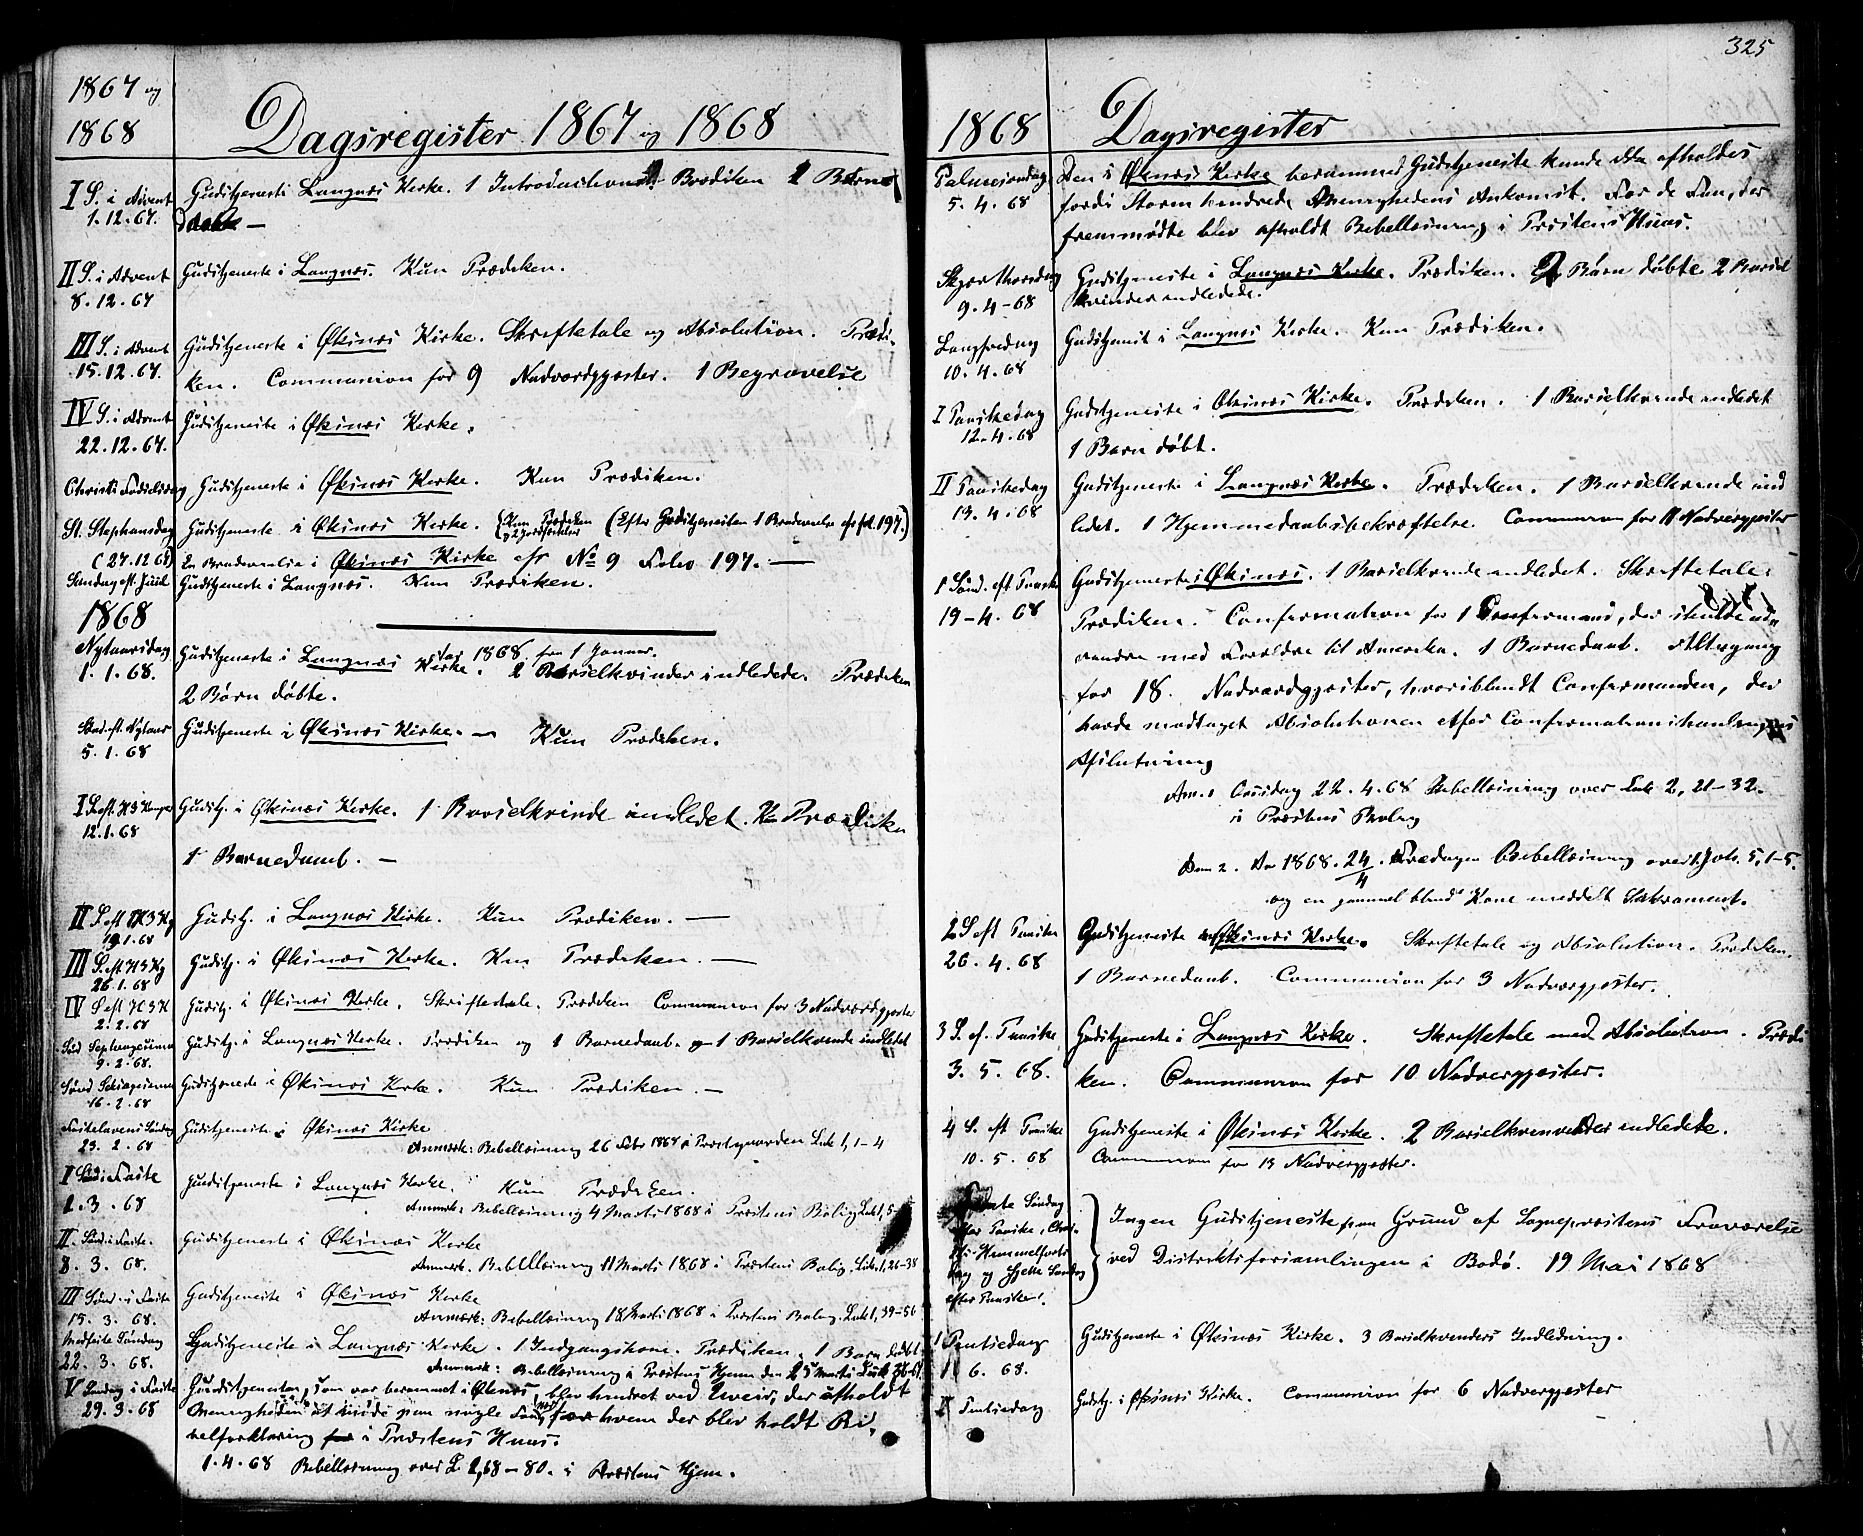 1867 og
1868
Dagsregister 1867 og 1868
I S. i Advent
1.12.67.
Gudstjeneste i Langnæs Kirke. 1 Introduction. Prædiken 2 Børn
døbte —
II S. i Advent
8.12.67
Gudstjeneste i Langnæs. Kun Prædiken.
III S. i Advent
15.12.67.
Gudstjeneste i Øksnæs Kirke. Skriftetale og Absolution. Prædi-
ken. Communion for 9 Nadverdgjæster. 1 Begravelse
IV S. i Advent
22.12.67.
Gudstjeneste i Øksnæs Kirke.
Christi Fødselsdag
Gudstjeneste i Øksnæs Kirke. Kun Prædiken.
St. Stephansdag
Gudstjeneste i Øksnæs Kirke. (Kun Prædiken (Efter Gudstjenesten 1 Brudevielse cfr fol. 197.)
(27.12 67)
En Brudevielse i Øksnæs Kirke cfr No 9 Folio 197. —
Søndag eft. Juul
Gudstjeneste i Langnæs. Kun Prædiken.
1868
for 1868 fra 1 Januar.
Nytaarsdag
1.1.68.
Gudstjeneste i Langnæs Kirke. 2 Barselkvinder indledede. Prædiken
2 Børn døbte.
Sønd. eft. Nytaar
5.1.68
Gudstjeneste i Øksnæs Kirke. — Kun Prædiken.
I S. eft. H 3 Konger
12.1.68
Gudstj. i Øksnæs Kirke. 1 Barselkvinde indledet. Kun Prædiken
1 Barnedaab. —
II S. eft H 3 Kg
19.1.68
Gudstj. i Langnæs Kirke. Kun Prædiken. —
III S. eft. H 3 Kg
26.1.68
Gudstj. i Øksnæs Kirke. Kun Prædiken. —
IV S eft H 3 K
2.2.68
Gudstj. i Øksnæs Kirke. Skriftetale. Prædiken Communion for 3 Nadverdgjæster
Sønd Septuagesima
9.2.68.
Gudstj. i Langnæs Kirke. Prædiken og 1 Barnedaab. og 1 Barselkvinde indledet
Sønd Seksagesima
16.2.68
Gudstjeneste i Øksnæs Kirke. Kun Prædiken. —
Fastelavens Søndag
23.2.68
Gudstjeneste i Øksnæs Kirke
Anmerk: Bibellæsning 26 Febr 1868 i Præstegaarden Luk 1, 1–4
I Sønd i Faste
1.3.68
Gudstjeneste i Langnæs Kirke. Kun Prædiken.
Anmerk: Bibellæsning 4 Marts 1868 i Præstens Bolig Luk 1, 5–
II Sønd i Faste.
8.3.68.
Gudstjeneste i Øksnæs Kirke
Anmerk. Bibellæsning 11 Marts 1868 i Præstens Bolig. Luk. 1, 26–38
III Sønd. i Faste
15.3.68.
Gudstjeneste i Øksnæs Kirke
Anmærk: Bibellæsning 18 Marts 1868 i Præstens Bolig. Luk 1, 39–56
Midfaste Søndag
22.3.68.
Gudstjeneste i Langnæs Kirke. 1 Indgangskone. Prædiken. 1 Barn døbt
Anmerk: Bibellæsning i Præstens Hjem den 25 Marts Luk
V Søndag i Faste
29.3.68
Gudstjenesten, som var berammet i Øksnæs, blev hindret ved Uveir, der afholdt
Menigheden fra at møde paa nogle Faa nær for hvem der blev holdt Bi-
belforklaring i Præstens Huus.
1.4.68 Bibellæsning over L. 1, 68–80. i Præstens Hjem.
325
1868
Dagsregister
Palmesøndag
5.4.68
Den i Øksnæs Kirke berammed Gudstjeneste kunde ikke afholdes
fordi Storm hindrede Menighedens Ankomst. For de Faa, der
fremmødte blev afholdt Bibellæsning i Præstens Huus.
Skjærthorsdag
9.4–68
Gudstjeneste i Langnæs Kirke. Prædiken. 2 Børn døbte 2 Barsel
kvinder indledede.
Langfredag
10.4.68
Gudstjenest i Langnæs Kirke. Kun Prædiken.
I Paaskedag
12.4.68
Gudstjeneste i Øksnæs Kirke. Prædiken. 1 Barselkvinde indledet
1 Barn døbt.
II Paaskedag
13.4.68
Gudstjeneste i Langnæs Kirke. Prædiken. 1 Barselkvinde ind
ledet. 1 Hjemmedaabsbekræftelse. Communion for 11 Nadvergjæster
1 Sønd. eft Paaske
19–4.68
Gudstjeneste i Øksnæs. 1 Barselkvinde indledet. Skriftetale.
Prædiken. Confirmation for 1 Confirmand, der skulde ud
vandre med Forældre til Amerika. 1 Barnedaab. Altergang
for 18 Nadverdgjæster, hvoriblandt Confirmanden, der
havde modtaget Absolutionen efter Confirmationshandlingens
Afslutning
Anm. 1 Onsdag 22.4.68 Bibellæsning over Luk 2, 21–32.
i Præstens Bolig
Anm 2. Aar 1868. 24/4. Fredagen Bibellæsning over 1 Joh. 5, 1–5.
og en gammel blind Kone meddelt Sakrament.
2 S. eft Paaske
26.4.68
Gudstjeneste i Øksnæs Kirke. Skriftetale og Absolution. Prædiken.
1 Barnedaab. Communion for 3 Nadvergjæster.
3 S. ef. Paaske
3.5.68.
Gudstjeneste i Langnæs Kirke. Skriftetale med Absolution. Prædi
ken. Communion for 10 Nadvergjæster.
4 S. eft Paaske
10.5.68
Gudstjeneste i Øksnæs Kirke. 2 Barselkvinder indledede.
Communion for 13 Nadvergjæster.
Femte Søndag
efter Paaske, Chri-
sti Himmelfarts
dag og sjette Søndag
efter Paaske.
Ingen Gudstjeneste paa Grund af Sognepræstens Fraværelse
ved Distriktsforsamlingen i Bodø. 19 Mai 1868
1 Pintsedag
1 6.68.
Gudstjeneste i Øksnæs Kirke. 3 Barselkvinders Indledning.
II Pintsedag
Gudstj. i Øksnæs Kirke. Communion for 6 Nadvergjæster